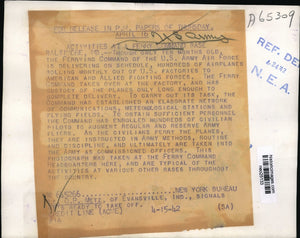 A65309
FOR RELEASE IN P.M. PAPERS OF TUESDAY,
APRIL 16
U S Army
REF. DE
N. E. A.
ACTIVITIES AT FERRY COMMAND BASE
BALTIMORE, MD.
THE FERRYING COMMAND OF THE U.S. ARMY AIR FORCES
IS DELIVERING ON SCHEDULE, HUNDREDS OF AIRPLANES
ROLLING MONTHLY OUT OF U.S. FACTORIES TO
AMERICAN AND ALLIED FIGHTING FORCES. THE FERRY
COMMAND TAKES OVER AT THE FACTORY, HAS
CUSTODY OF THE PLANES ONLY LONG ENOUGH TO
COMPLETE DELIVERY. TO CARRY OUT ITS TASK, THE
COMMAND HAS ESTABLISHED AN ELABORATE NETWORK
OF COMMUNICATIONS, METEOROLOGICAL STATIONS AND
FLYING FIELDS. TO OBTAIN SUFFICIENT PERSONNEL
THE COMMAND HAS ENROLLED HUNDREDS OF CIVILIAN
PILOTS TO AUGMENT REGULAR AND RESERVE ARMY
FLIERS. AS THE CIVILIANS FERRY THE PLANES,
THEY ARE INSTRUCTED IN ARMY METHODS, ROUTINE
AND DISCIPLINE, AND ULTIMATELY ARE TAKEN INTO
THE ARMY AS COMMISSIONED OFFICERS. THIS
PHOTOGRAPH WAS TAKEN AT THE FERRY COMMAND
HEADQUARTERS HERE, AND ARE TYPICAL OF THE
ACTIVITIES AT VARIOUS OTHER BASES THROUGHOUT
THE COUNTRY.
NEW YORK BUREAU
OF EVANSVILLE, IND., SIGNALS
READY TO TAKE OFF.
CREDIT LINE (ACME) 4-15-42 (SA)